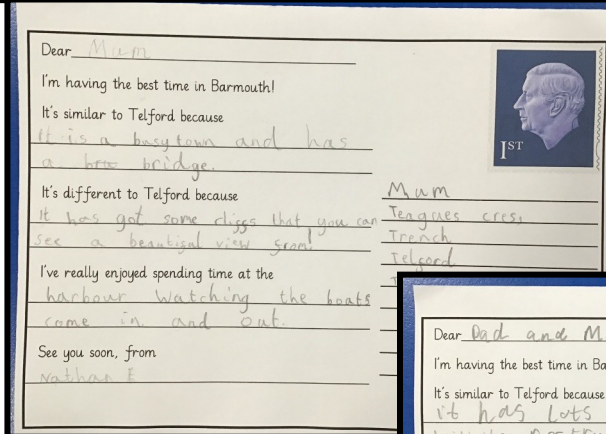 Dear Mum
I'm having the best time in Barmouth!
It's similar to Telford because
It is a busy town and has
a bridge.
It's different to Telford because
It has got some cliggs that you can
see a beautisul view srom!
I've really enjoyed spending time at the
harbour Watching the boats
come in and out.
See you soon, from
Nathan E
1ST
Mum
Teagues cres,
Trench
Telgord
Dear Dad and M
I'm having the best time in Ba
It's similar to Telford because
it has Lots